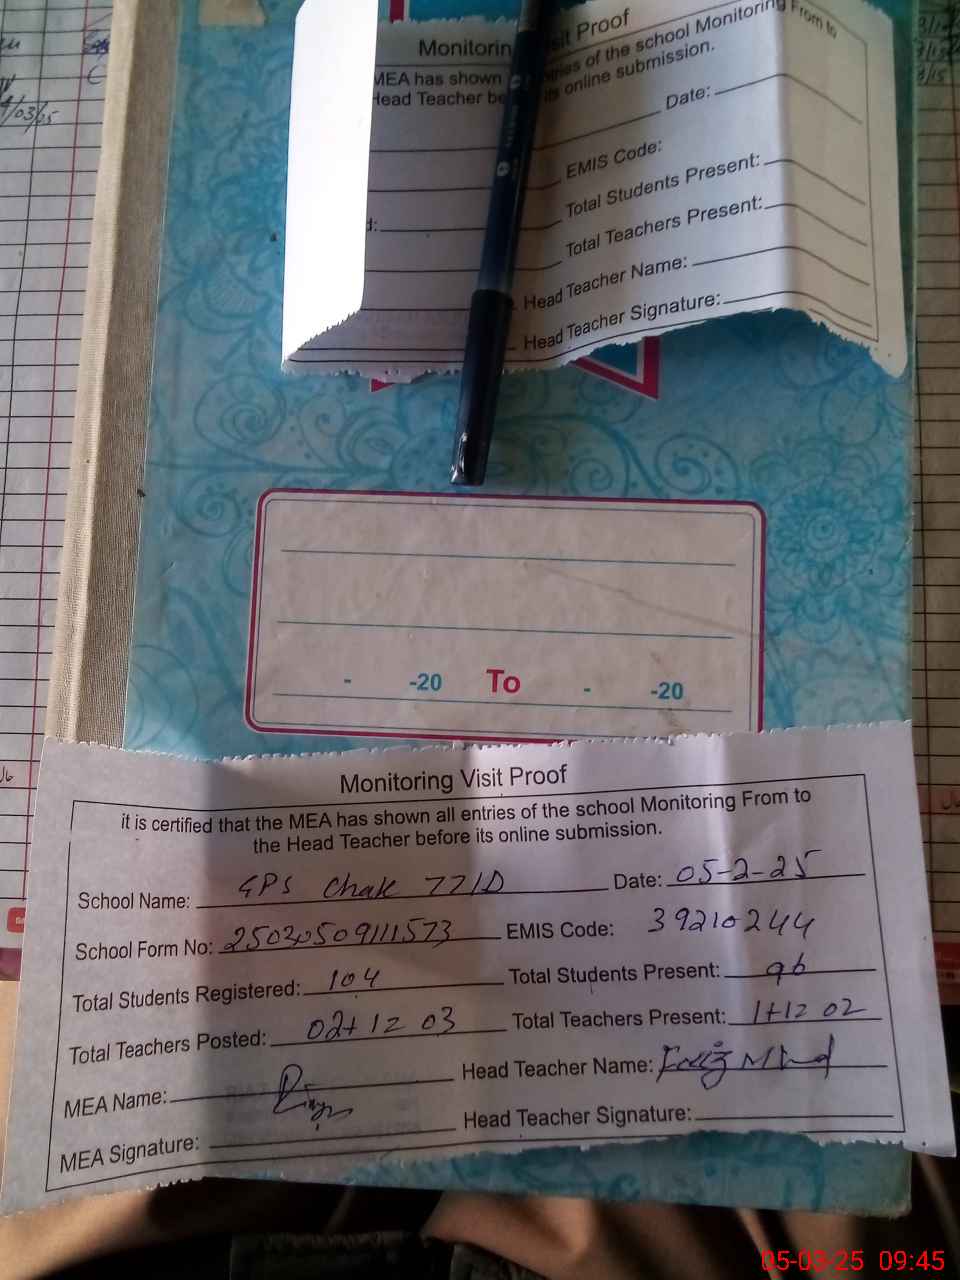 Monitorin sit Proof
MEA has shown ntries of the school Monitoring From to
Head Teacher be its online submission.
Date:
EMIS Code:
Total Students Present:
d: Total Teachers Present:
Head Teacher Name:
Head Teacher Signature:
- -20 To - -20
Monitoring Visit Proof
it is certified that the MEA has shown all entries of the school Monitoring From to
the Head Teacher before its online submission.
School Name: GPS Chak 771D Date: 05-2-25
School Form No: 25030509111573 EMIS Code: 39210244
Total Students Registered: 104 Total Students Present: 96
Total Teachers Posted: 02+1=03 Total Teachers Present: 1+1=02
MEA Name: Head Teacher Name:
MEA Signature: Head Teacher Signature:
05-03-25 09:45